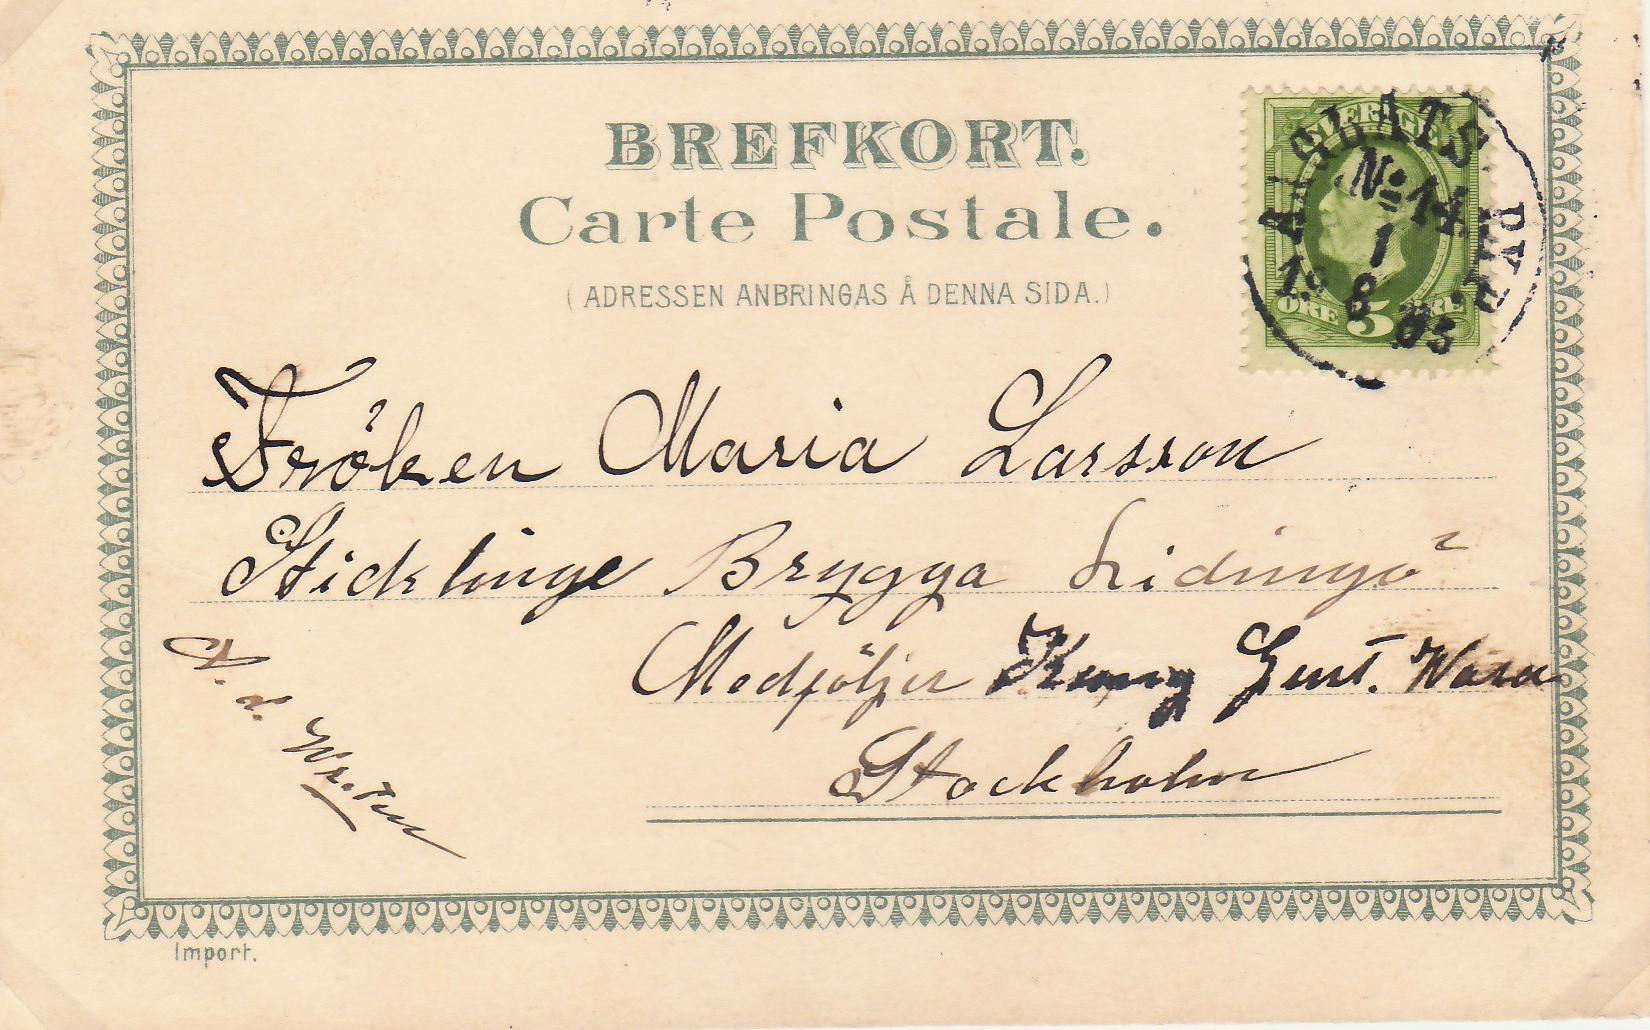 BREFKORT.
Carte Postale.
(ADRESSEN ANBRINGAS Å DENNA SIDA.)
SVERIGE
ÖRE 5 ÖRE
No 14
1
19 8 03
Fröken Maria Larsson
Sticklinge Brygga Lidingö
Medföljer Kung Gust. Wasa
Stockholm
Import.